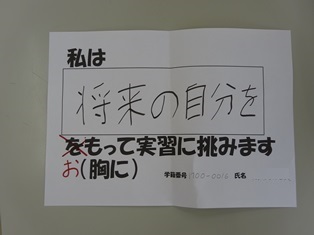 私は
将来の自分を
をもって実習に挑みます
お(胸に)
学籍番号 氏名